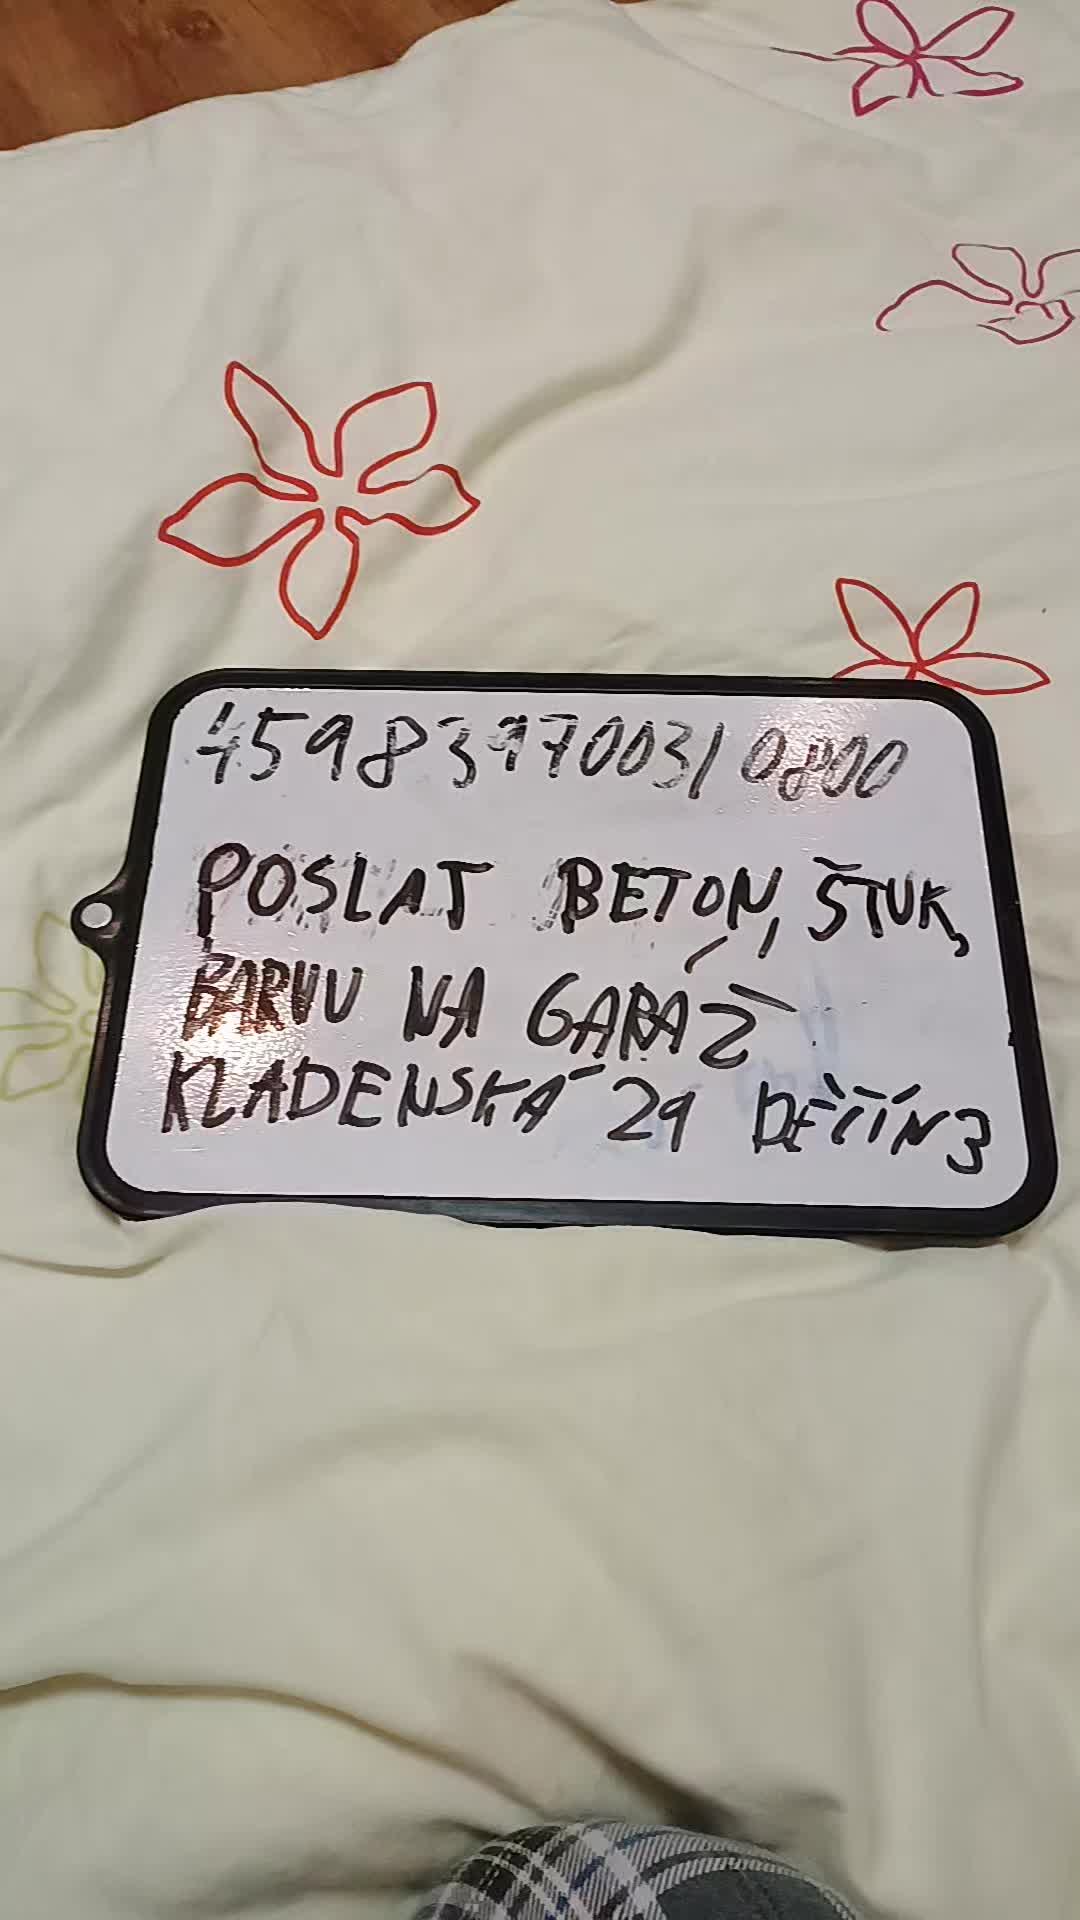 4598397003/0800
POSLAT BETON, ŠTUK,
BARVU NA GARÁŽ
KLADENSKÁ 29 DĚČÍN 3